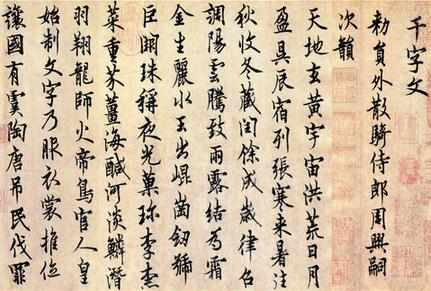 千字文
勅員外散騎侍郎周興嗣
次韻
天地玄黃宇宙洪荒日月
盈昃辰宿列張寒来暑往
秋收冬藏閏餘成歲律召
調陽雲騰致雨露結為霜
金生麗水玉出崐崗劒號
巨闕珠稱夜光菓珍李柰
菜重芥薑海醎河淡鱗潛
羽翔龍師火帝鳥官人皇
始制文字乃服衣裳推位
讓國有虞陶唐弔民伐罪